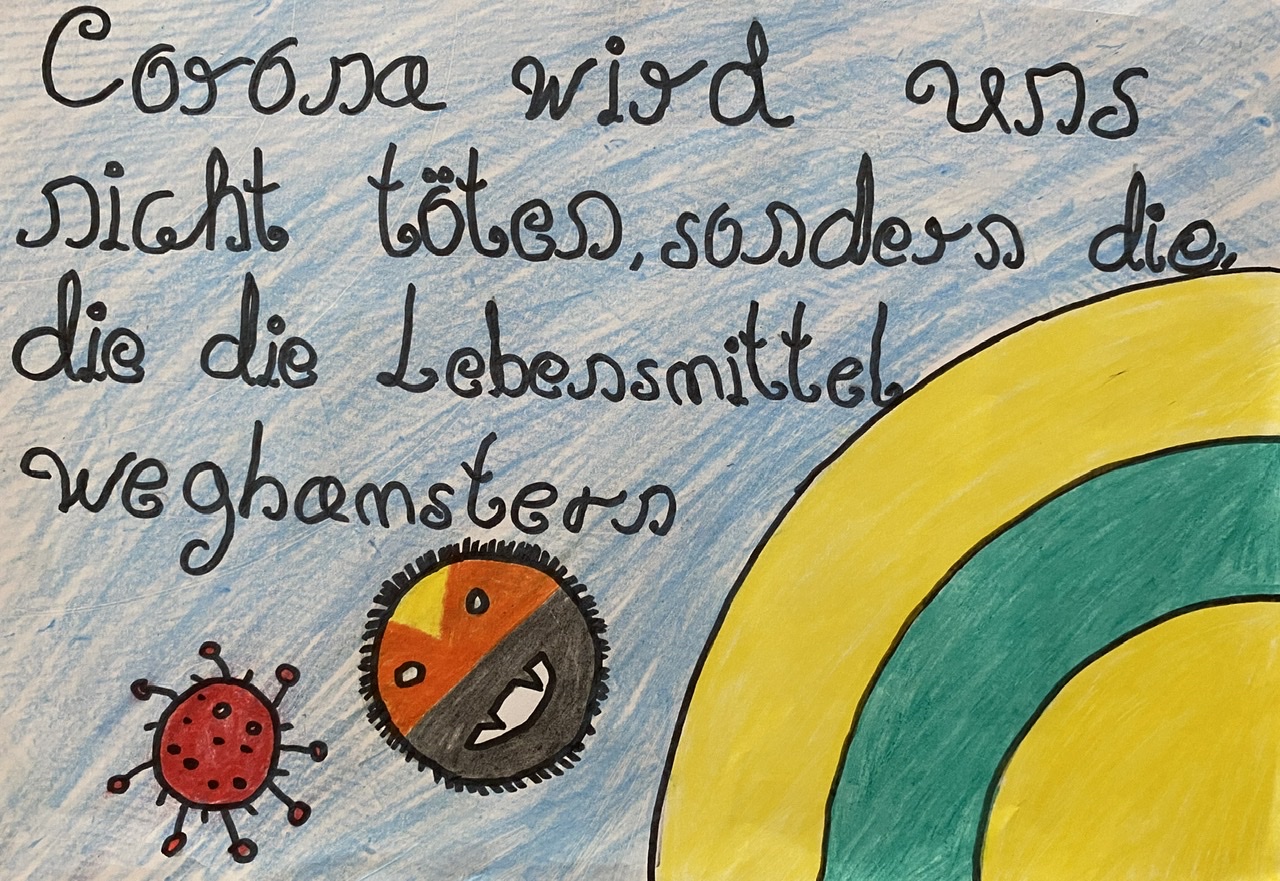 Corona wird uns
nicht töten, sondern die,
die die Lebensmittel
weghamstern